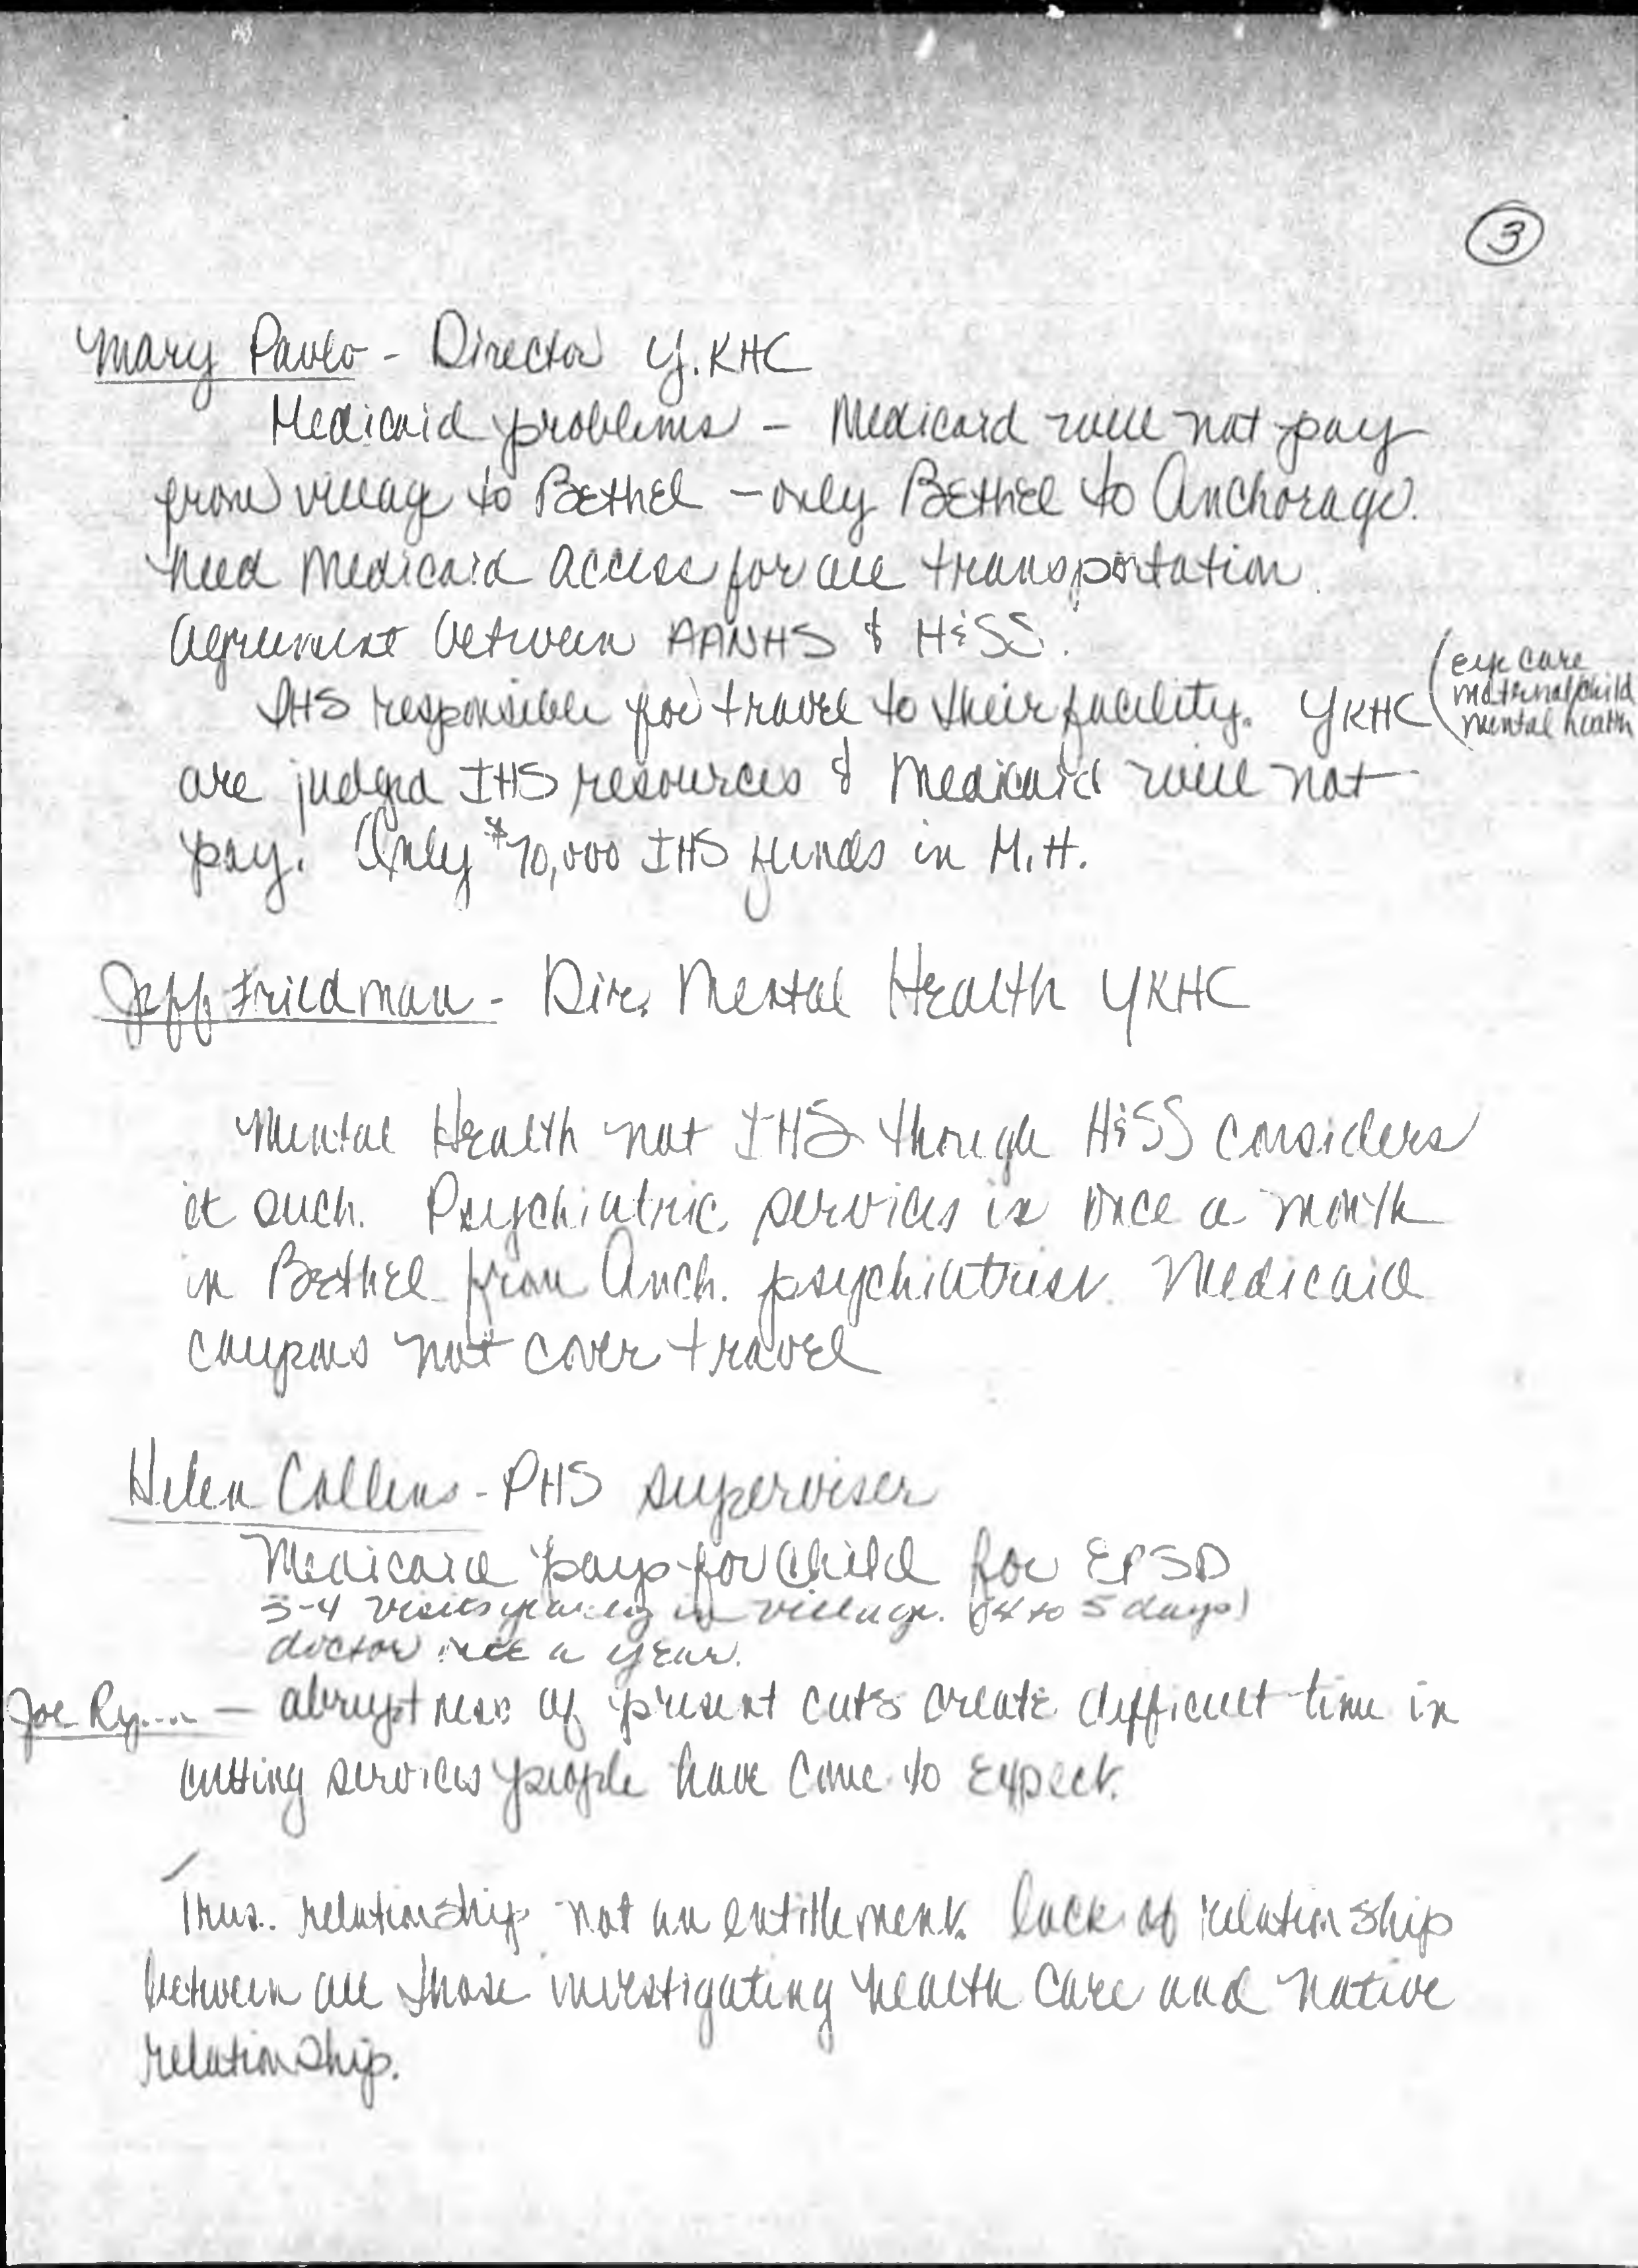 3
Mary Pavlo - Director Y.KHC
Medicaid problems - Medicaid will not pay
from village to Bethel - only Bethel to Anchorage.
Need Medicaid access for all transportation.
Agreement between AANHS & H&SS.
IHS responsible for travel to their facility. YKHC (eye care
maternal/child
mental health
are judged IHS resources & Medicaid will not
pay. Only $70,000 IHS funds in M.H.
Jeff Friedman - Dir. Mental Health YKHC
Mental Health not IHS though H&SS considers
it such. Psychiatric services is once a month
in Bethel from Anch. psychiatrist. Medicaid
coupons not cover travel
Helen Collins - PHS superviser
Medicaid pays for child for EPSD
3-4 visits yearly in village. (4 to 5 days)
doctor a year.
Joe - abruptness of present cuts create difficult time in
cutting services people have come to expect.
relationship not an entitlement. lack of relationship
between all those investigating health care and native
relationship.